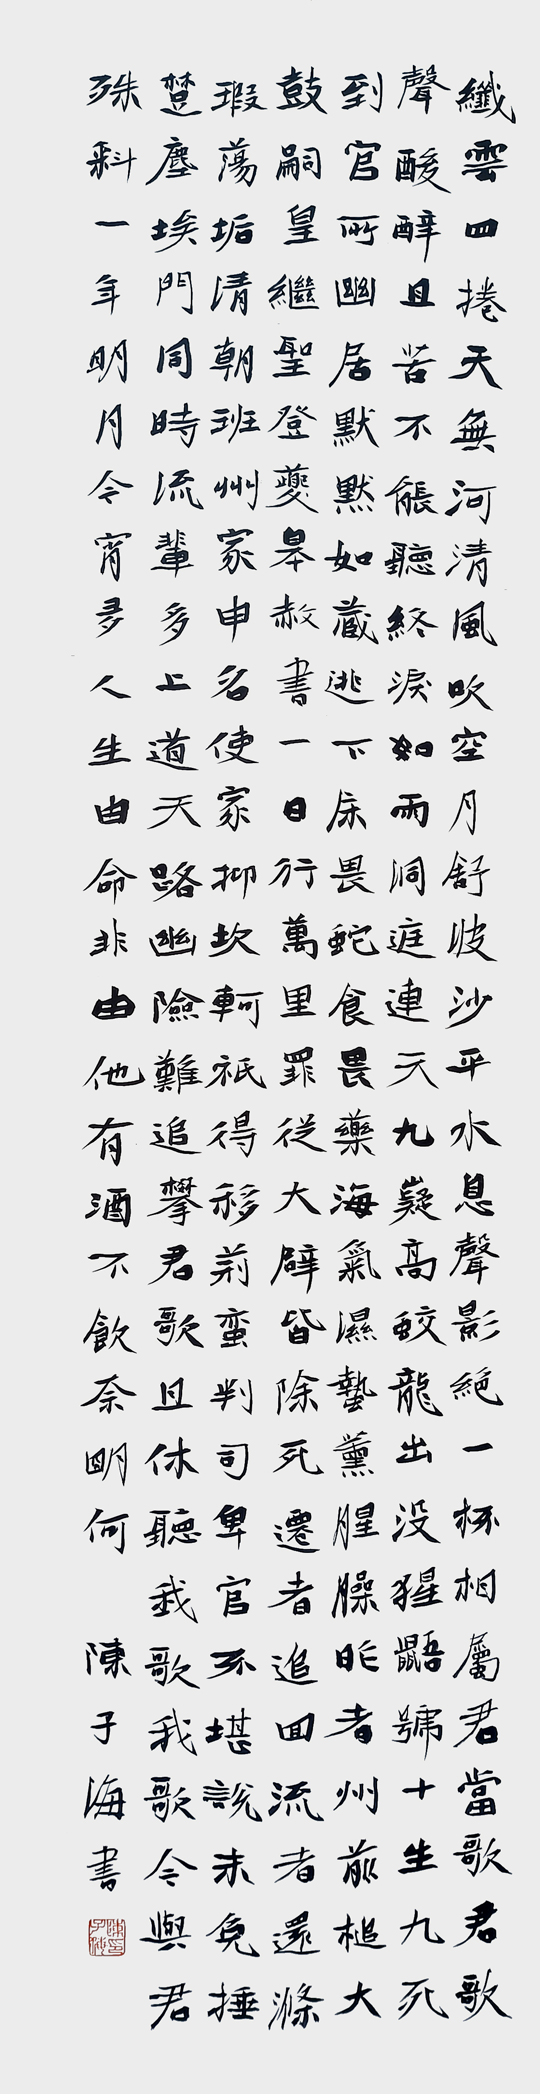 纖雲四捲天無河清風吹空月舒波沙平水息聲影絕一杯相屬君當歌君歌
聲酸辭且苦不能聽終淚如雨洞庭連天九嶷高蛟龍出没猩鼯號十生九死
到官所幽居默默如藏逃下床畏蛇食畏藥海氣濕蟄薰腥臊昨者州前槌大
鼓嗣皇繼聖登夔皋赦書一日行萬里罪從大辟皆除死遷者追回流者還滌
瑕蕩垢清朝班州家申名使家抑坎軻祇得移荊蛮判司卑官不堪說未免捶
楚塵埃門同時流輩多上道天路幽險難追攀君歌且休聽我歌我歌今與君
殊科一年明月今宵多人生由命非由他有酒不飲奈明何 陳子海書